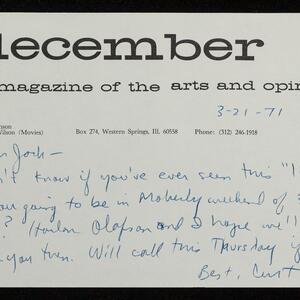 december
magazine of the arts and opin
3-21-71
nson
Wilson (Movies) Box 274, Western Springs, Ill. 60558 Phone: (312) 246-1918
n Jack—
n't know if you've ever seen this "
ou going to be in Moberly weekend of 3
? Harlon Olafson and I hope we'll
you then. Will call this Thursday if
Best, Curt